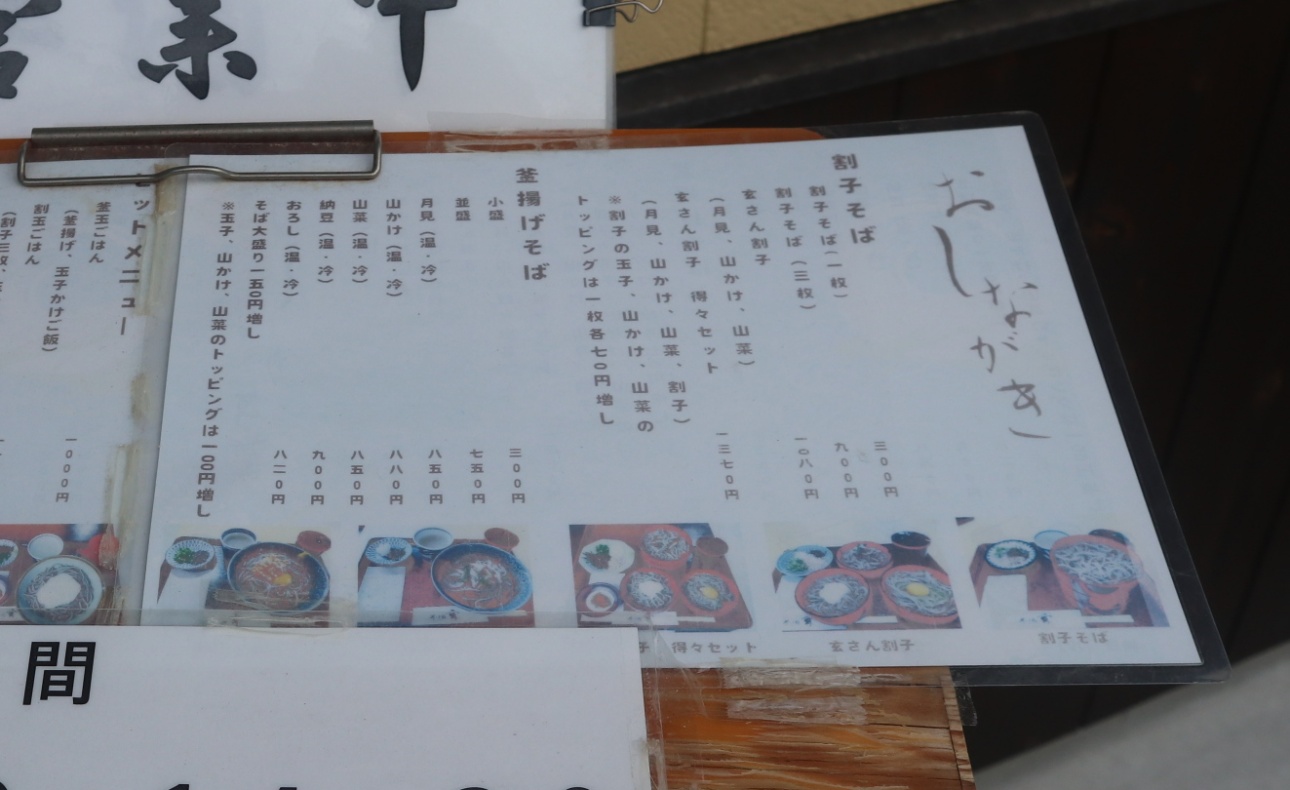 営業中
おしながき
割子そば
割子そば(一枚) 三00円
割子そば(三枚) 九00円
玄さん割子 一0八0円
(月見、山かけ、山菜)
玄さん割子 得々セット 一三七0円
(月見、山かけ、山菜、割子)
※割子の玉子、山かけ、山菜の
トッピングは一枚各七0円増し
釜揚げそば
小盛 三00円
並盛 七五0円
月見(温・冷) 八五0円
山かけ(温・冷) 八八0円
山菜(温・冷) 八五0円
納豆(温・冷) 九00円
おろし(温・冷) 八二0円
そば大盛り一五0円増し
※玉子、山かけ、山菜のトッピングは一00円増し
割子そば
玄さん割子
子 得々セット
セットメニュー
釜玉ごはん 一000円
(釜揚げ、玉子かけご飯)
割玉ごはん
(割子三枚、
間